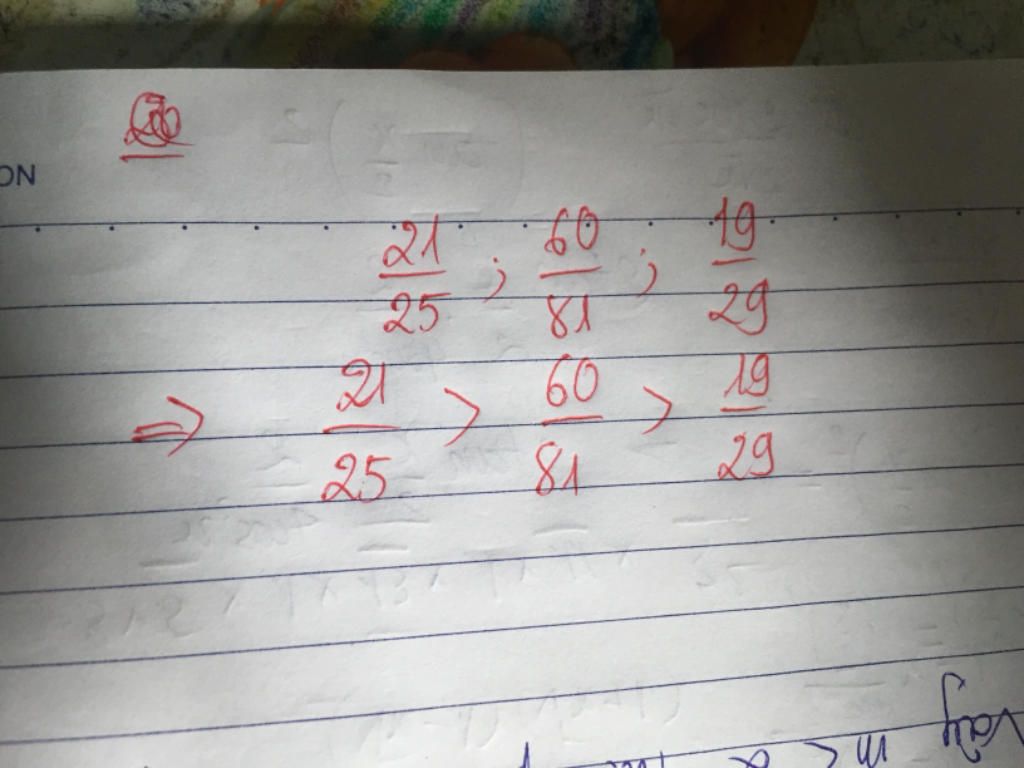 ON
21/25 ; 60/81 ; 19/29
⇒ 21/25 > 60/81 > 19/29
Vậy
m <